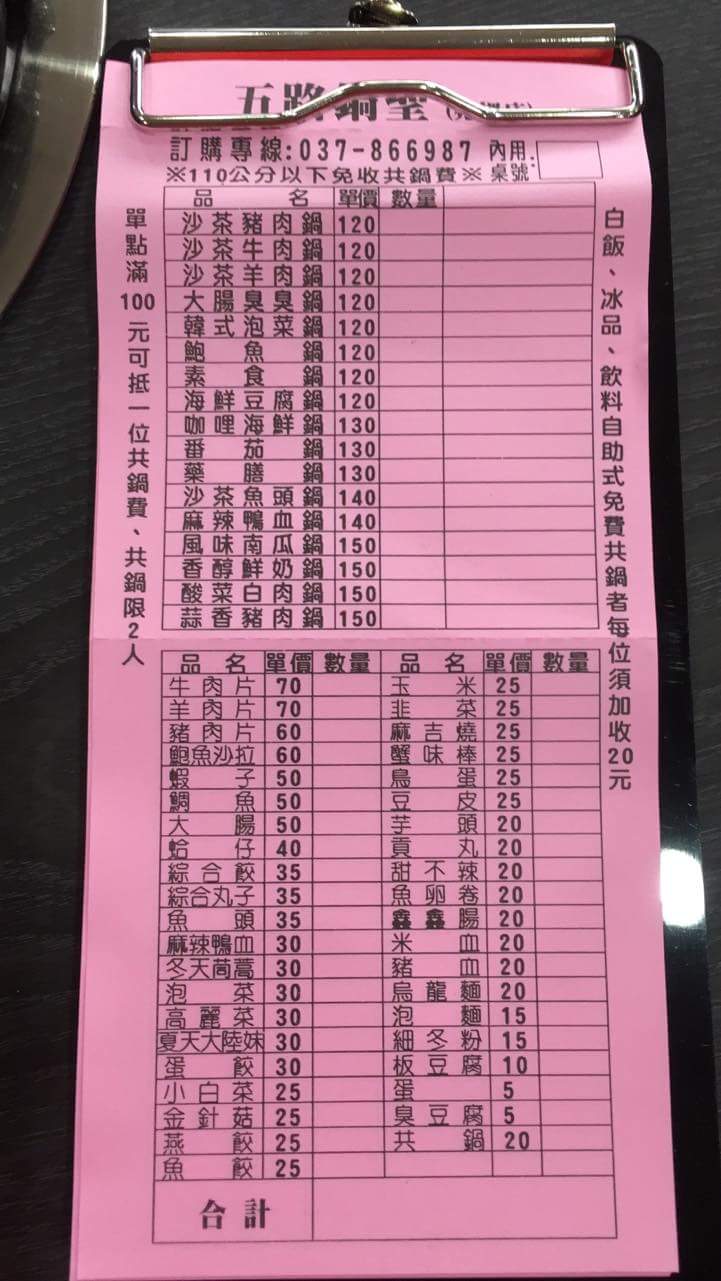 五路鍋
訂購專線:037-866987 內用
※110公分以下免收共鍋費※ 桌號:
品名 單價 數量
沙茶豬肉鍋 120
沙茶牛肉鍋 120
沙茶羊肉鍋 120
大腸臭臭鍋 120
韓式泡菜鍋 120
鮑魚鍋 120
素食鍋 120
海鮮豆腐鍋 120
咖哩海鮮鍋 130
番茄鍋 130
藥膳鍋 130
沙茶魚頭鍋 140
麻辣鴨血鍋 140
風味南瓜鍋 150
香醇鮮奶鍋 150
酸菜白肉鍋 150
蒜香豬肉鍋 150
單點滿100元可抵一位共鍋費、共鍋限2人
白飯、冰品、飲料自助式免費共鍋者每位須加收20元
品名 單價 數量 品名 單價 數量
牛肉片 70 玉米 25
羊肉片 70 韭菜 25
豬肉片 60 麻吉燒 25
鮑魚沙拉 60 蟹味棒 25
蝦子 50 鳥蛋 25
鯛魚 50 豆皮 25
大腸 50 芋頭 20
蛤仔 40 貢丸 20
綜合餃 35 甜不辣 20
綜合丸子 35 魚卵卷 20
魚頭 35 鑫鑫腸 20
麻辣鴨血 30 米血 20
冬天茼蒿 30 豬血 20
泡菜 30 烏龍麵 20
高麗菜 30 泡麵 15
夏天大陸妹 30 細冬粉 15
蛋餃 30 板豆腐 10
小白菜 25 蛋 5
金針菇 25 臭豆腐 5
燕餃 25 共鍋 20
魚餃 25
合計